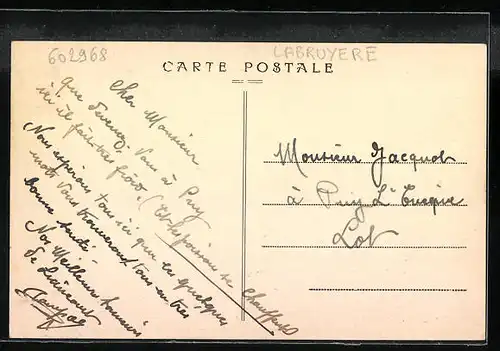 602968
LABRUYERE
CARTE POSTALE
Cher Monsieur
que devenez Vous à Puy
ici il fait très froid.
Nous espérons tous ici que ces quelques
mots vous trouveront tous en très
bonne santé
Nos Meilleurs
de Liancourt
chauffer
Monsieur Jacquot
à Puy L'Evêque
Lot